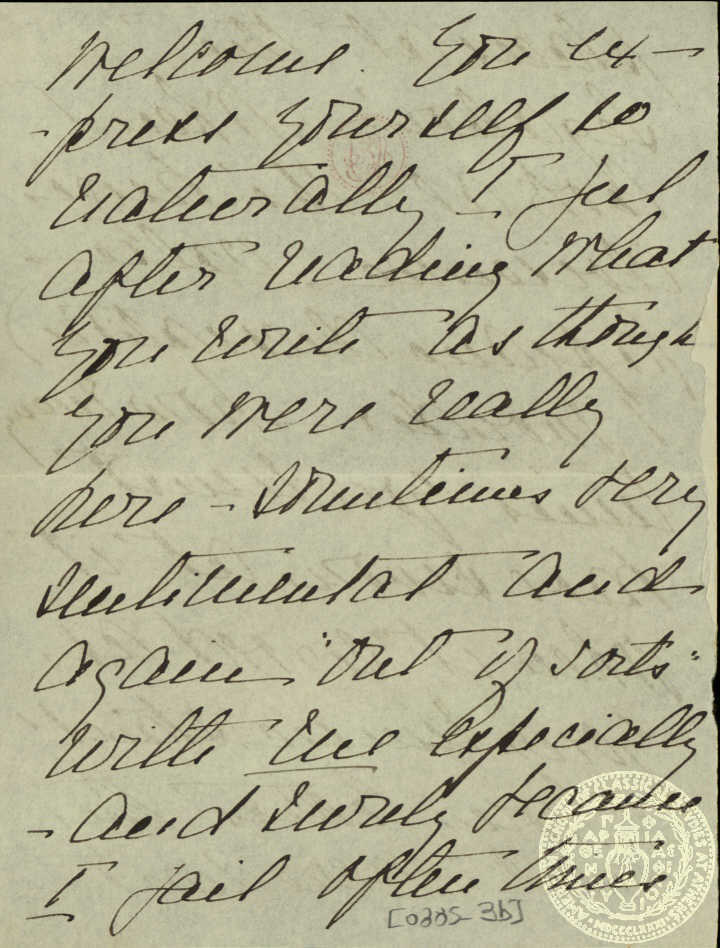 welcome. You ex-
-press yourself so
naturally - I feel
after reading what
you write as though
you were really
here - sometimes very
sentimental and
again "out of sorts"
with me especially
- and surely because
I fail often times
[0335-3b]